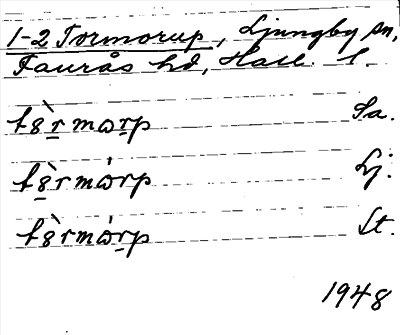 1-2 Tormorup, Ljungby sn,
Faurås hd, Hall. l.
tȣ̀r̲mω̇r̲p Sa.
tȣ̲̀rmω̇rp Lj.
tȣ̀rmω̇r̲p St.
1948